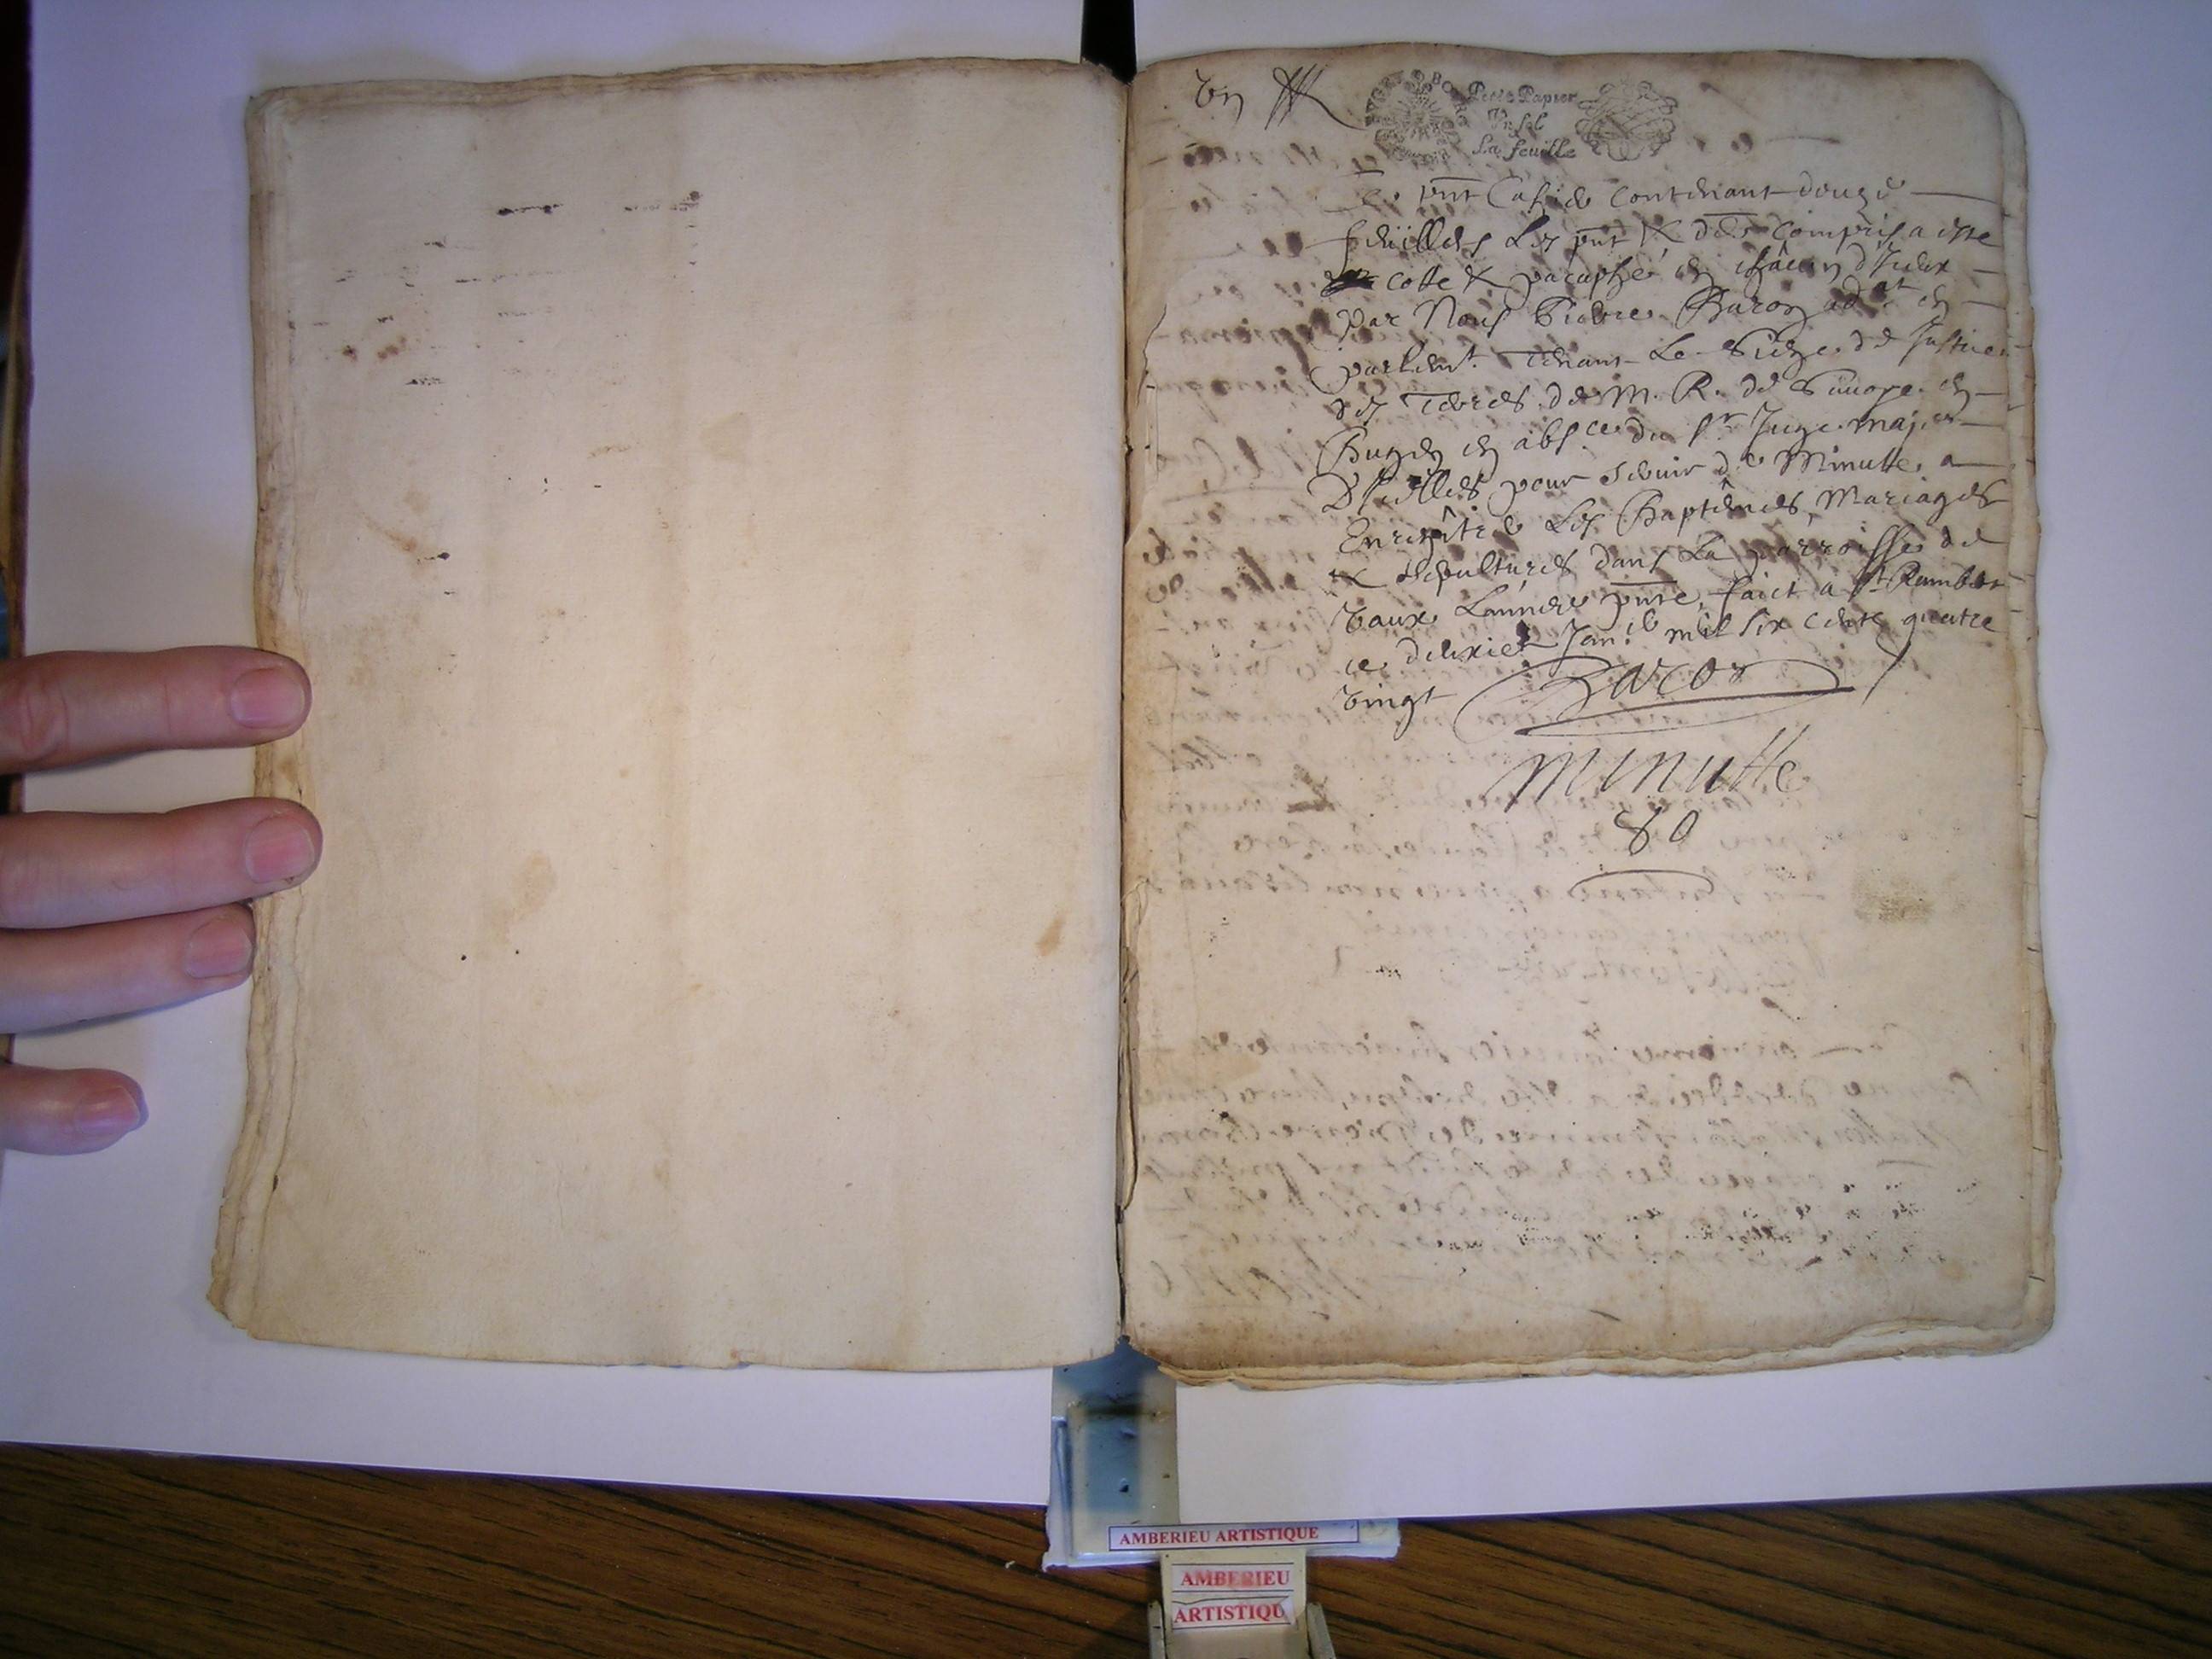 Un
Petit Papier
Un sol
La feuille
Le pnt Cahier Contenant douze
feüilles Les pnt & der Compris a este
cotte & paraphé en chacun d'Iceux
par Nous Pierre Baron adat en
parlemt. tenant Le Siege de Justice
des Terres de M. R. de Savoye en
Bugey en absce du sr Juge maje
D'Icelles pour servir de Minutte a
Enregîtrer Les Baptêmes, Mariages
& sepultures dans La parroisse de
Vaux Lannée pnte, faict a St Rambert
ce deuxiè Janer mil six cents quatre
vingt Baron
Minutte
80
AMBERIEU ARTISTIQUE
AMBERIEU
ARTISTIQU